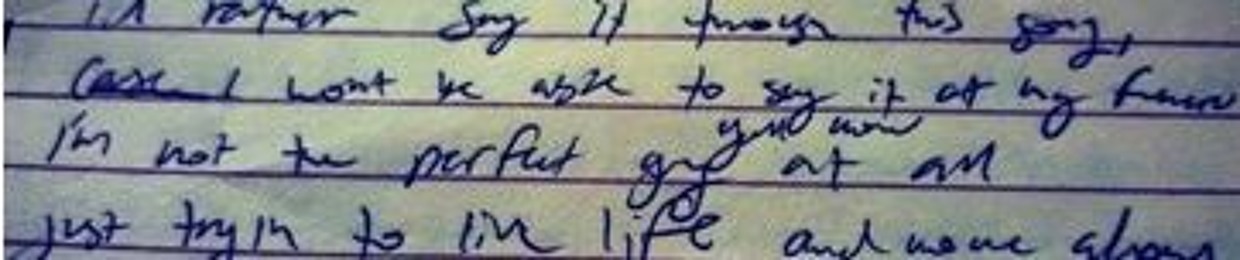 I'd rather say it through this song,
Case I wont be able to say it at my funeral
I'm not the perfect guy at all
you know
just tryin to live life and move along